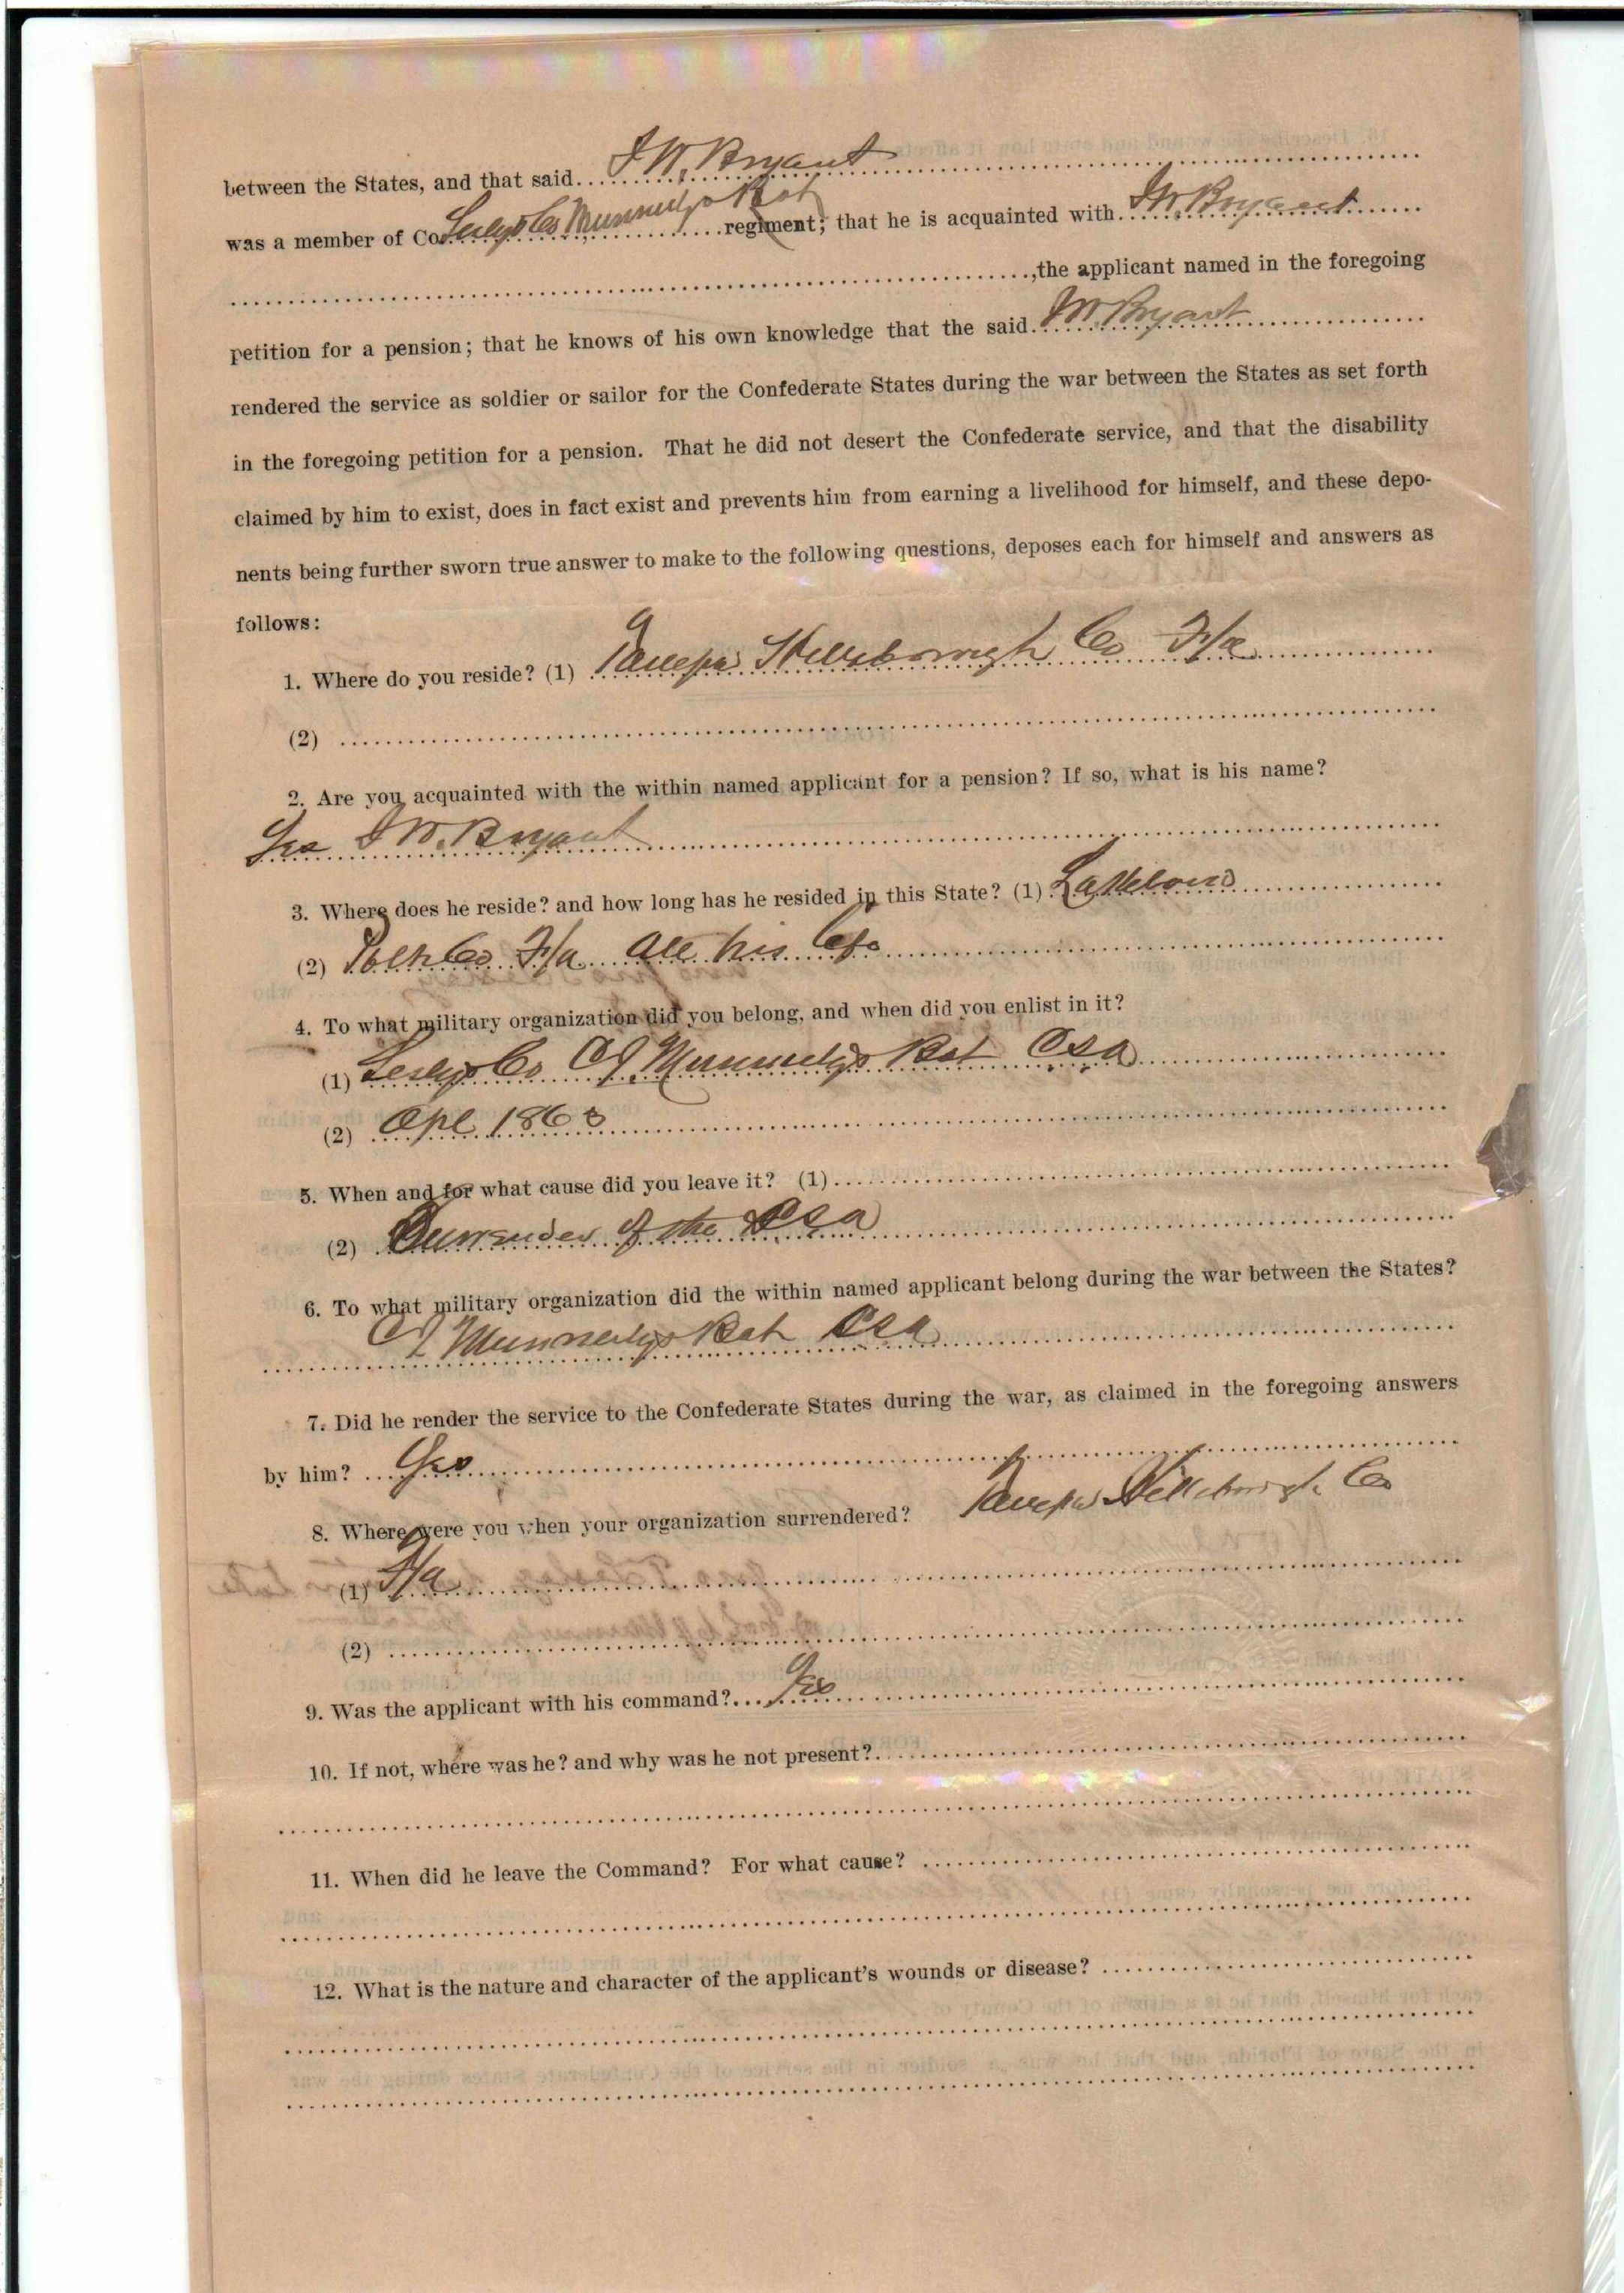 between the States, and that said J W. Bryant
was a member of Co. Lesleys Co Munnerlyn Bat regiment; that he is acquainted with J W Bryant
, the applicant named in the foregoing
petition for a pension; that he knows of his own knowledge that the said J W. Bryant
rendered the service as soldier or sailor for the Confederate States during the war between the States as set forth
in the foregoing petition for a pension. That he did not desert the Confederate service, and that the disability
claimed by him to exist, does in fact exist and prevents him from earning a livelihood for himself, and these depo-
nents being further sworn true answer to make to the following questions, deposes each for himself and answers as
follows:
1. Where do you reside? (1) Tampa Hillsborough Co Fla
(2)
2. Are you acquainted with the within named applicant for a pension? If so, what is his name?
Yes J W. Bryant
3. Where does he reside? and how long has he resided in this State? (1) Lakeland
(2) Polk Co Fla all his life
4. To what military organization did you belong, and when did you enlist in it?
(1) Lesleys Co Munnerlyns Bat CSA
(2) Apl 1863
5. When and for what cause did you leave it? (1)
(2) Surrender of the CSA
6. To what military organization did the within named applicant belong during the war between the States?
Munnerlyns Bat CSA
7. Did he render the service to the Confederate States during the war, as claimed in the foregoing answers
by him? Yes
8. Where were you when your organization surrendered? Tampa Hillsborough Co
(1) Fla
(2)
9. Was the applicant with his command? Yes
10. If not, where was he? and why was he not present?
11. When did he leave the Command? For what cause?
12. What is the nature and character of the applicant's wounds or disease?